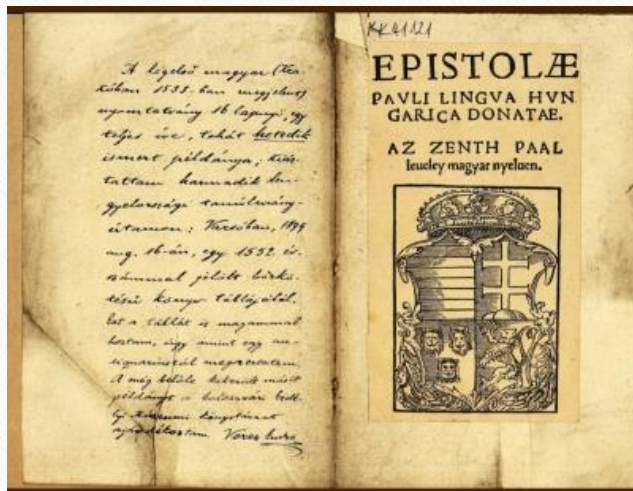 A legelső magyar (Kra-
kóban 1533-ban megjelent)
nyomtatvány 16 lapnyi, egy
teljes íve, tehát hetedik
ismert példánya; kiáz-
tattam harmadik len-
gyelországi tanulmány-
útamon: Varsóban, 1899
aug. 16-án, egy 1532 év-
számmal jelölt bőrkö-
tésű könyv táblájából.
Ezt a táblát is magammal
hoztam, úgy amint egy an-
tiquariustól megszereztem.
A még belőle kikerült másik
példányt a kolozsvári Erdé-
lyi Múzeumi könyvtárnak
ajándékoztam. Veress Endre
KK41121
EPISTOLÆ
PAVLI LINGVA HVN
GARICA DONATAE.
AZ ZENTH PAAL
leueley magyar nyeluen.